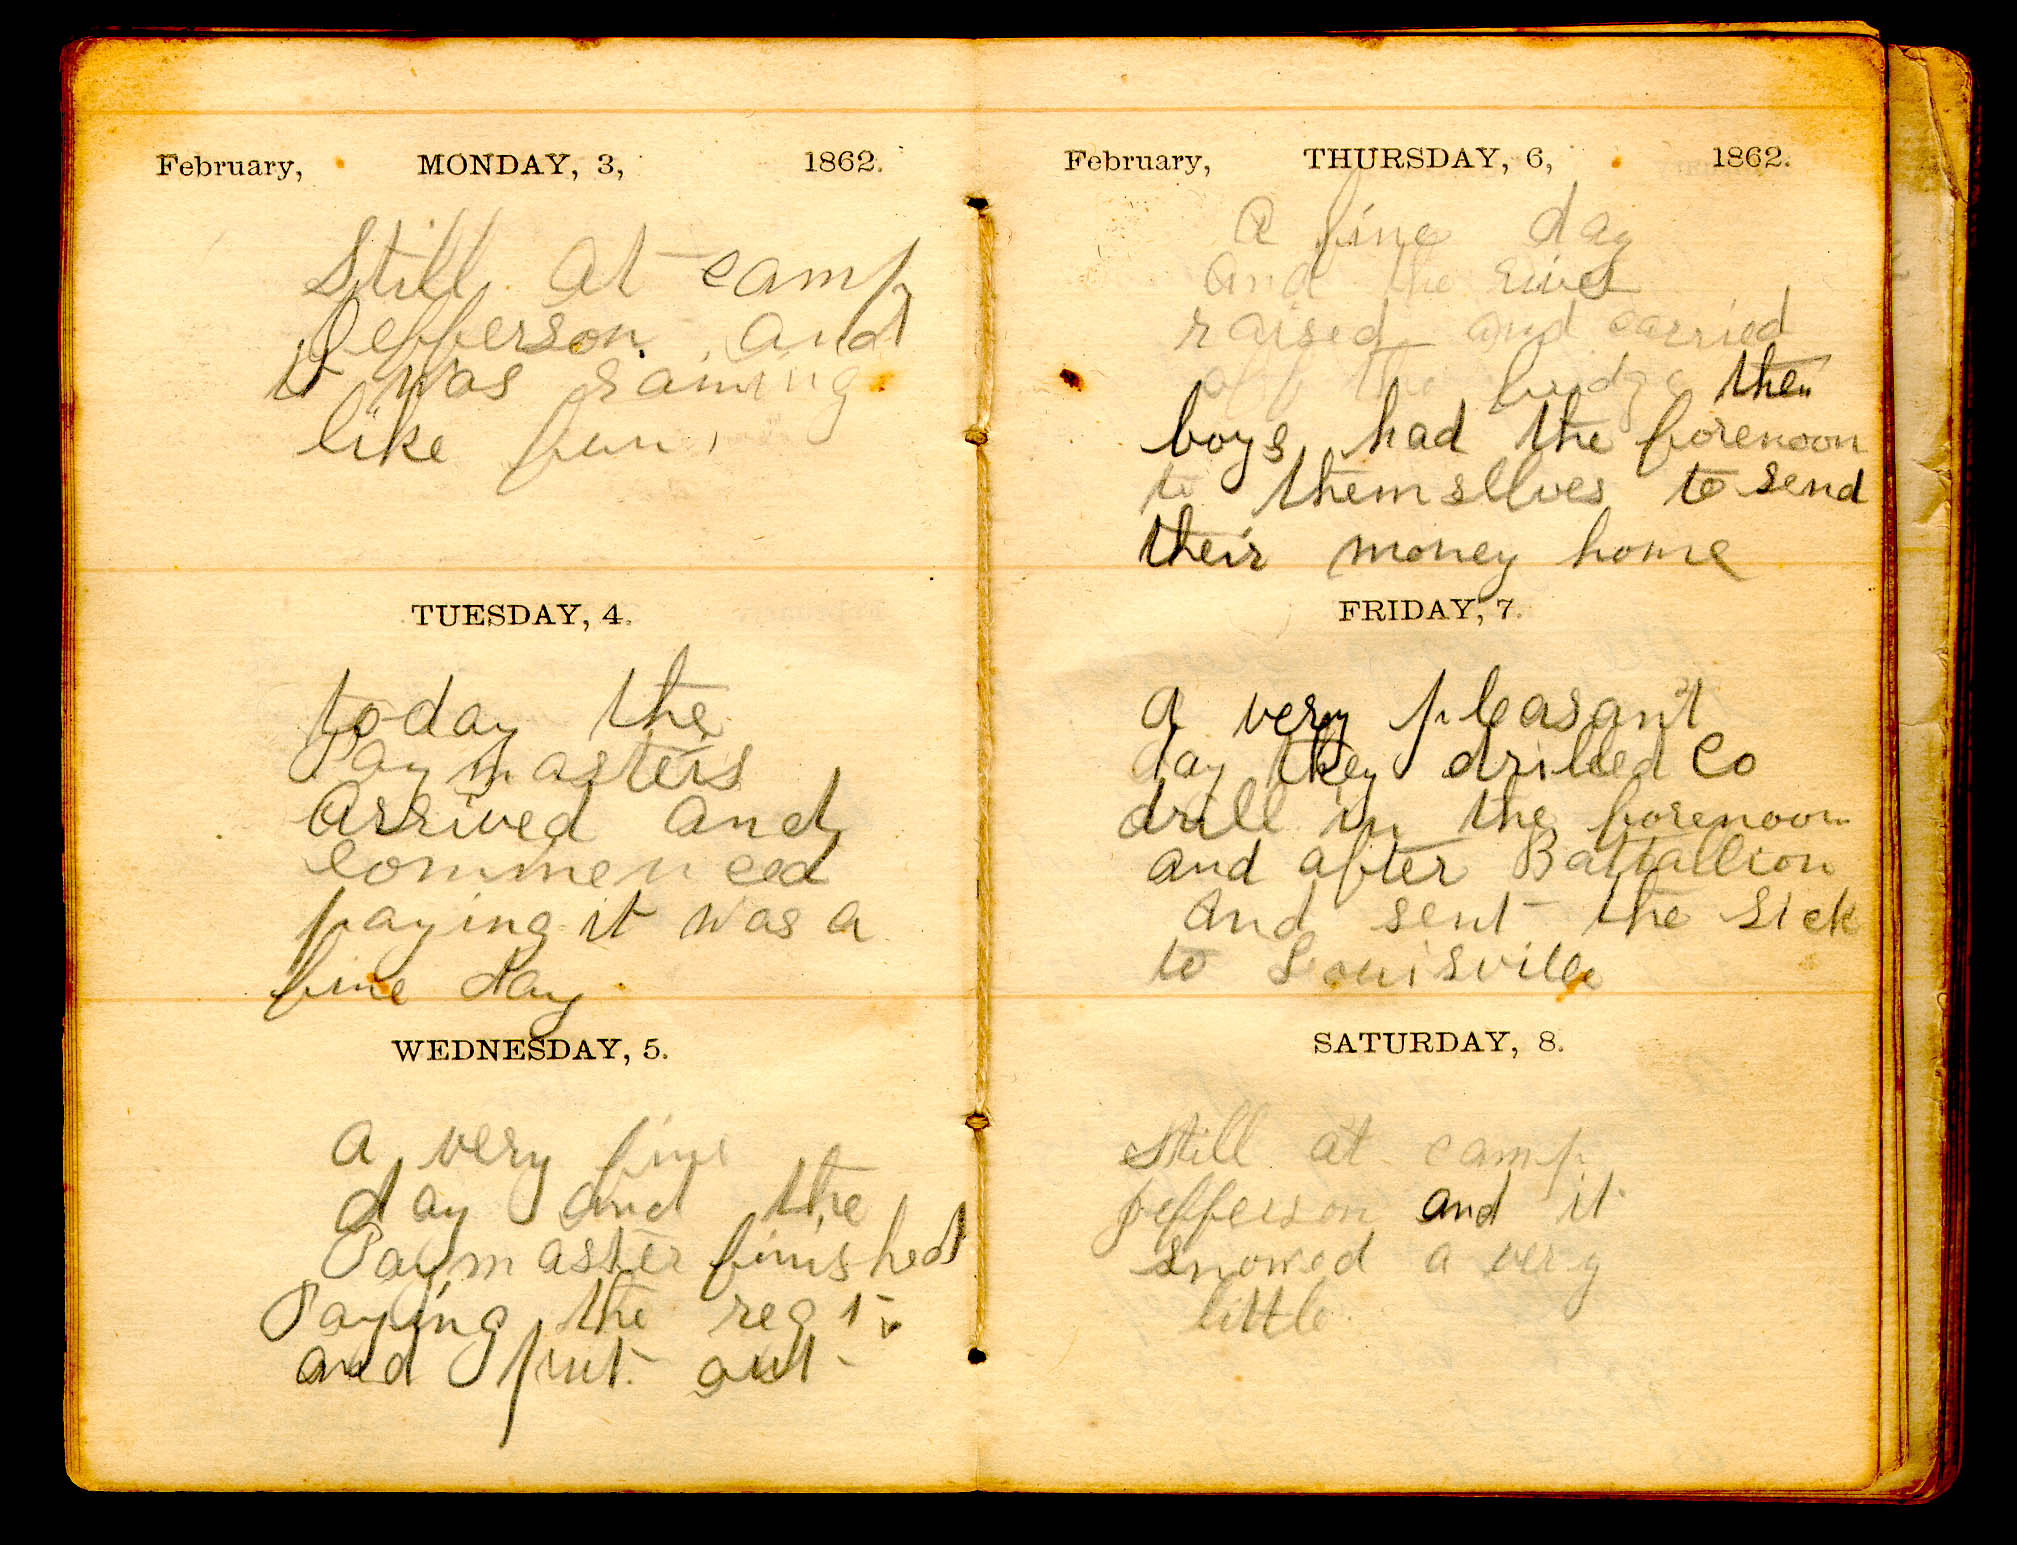 February, MONDAY, 3, 1862.
Still at camp
Jefferson and
it was raining
like fun,
TUESDAY, 4.
today the
Paymasters
arrived and
commenced
paying it was a
fine day
WEDNESDAY, 5.
A very fine
day and the
Paymaster finished
Paying the regt
and put out
February, THURSDAY, 6, 1862.
a fine day
and the river
raised and carried
off the bridge the
boys had the forenoon
to themsllves to send
their money home
FRIDAY, 7.
a very pleasant
day they drilled Co
drill in the forenoon
and after Battallion
and sent the sick
to Louisville
SATURDAY, 8.
Still at camp
jefferson and it
snowed a very
little